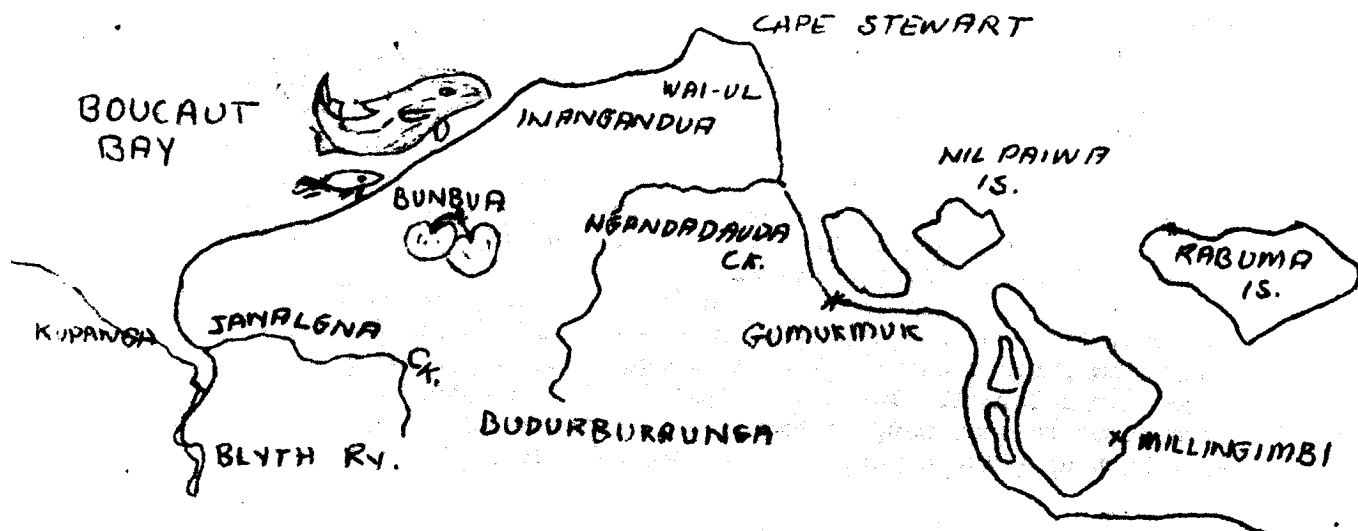 CAPE STEWART
BOUCAUT
BAY
WAI-UL
INANGANDUA
NILPAIWA
IS.
BUNBUA
NGANDADAUDA
CK.
RABUMA
IS.
KUPANGA
JANALGNA
CK.
GUMUKMUK
BUDURBURAUNGA
MILLINGIMBI
BLYTH RV.